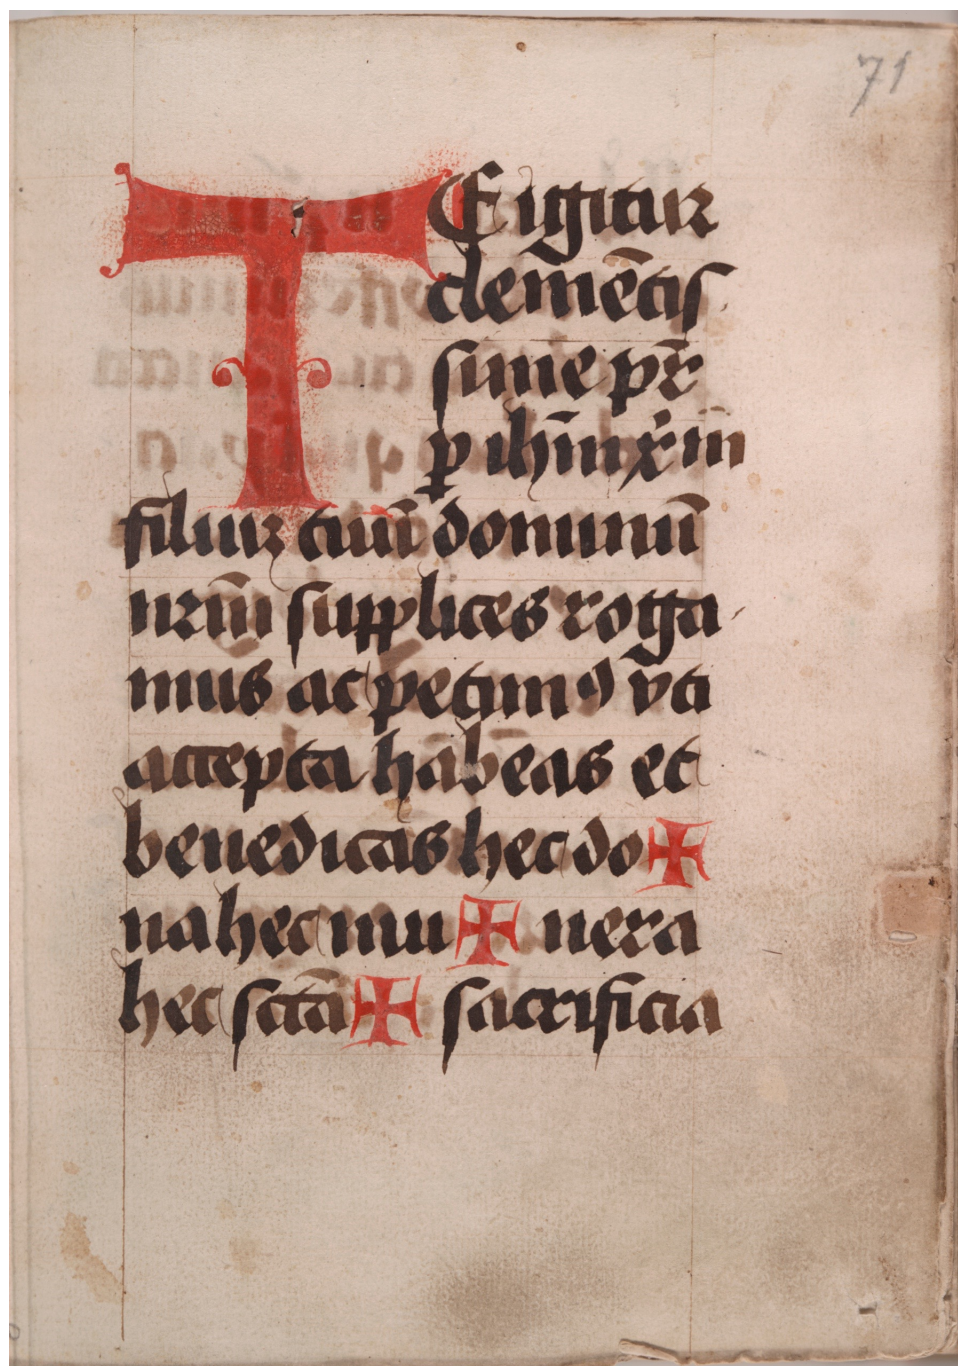 71
TE igitur
clemētis
sime pr̄
ꝑ ihm̄ xp̄m
filiuꝫ tuū dominū
nrm̄ supplices roga
mus ac petimꝰ vti
accepta habeas et
benedicas hec do ✠
na hec mu ✠ nera
hec sctā ✠ sacrificia